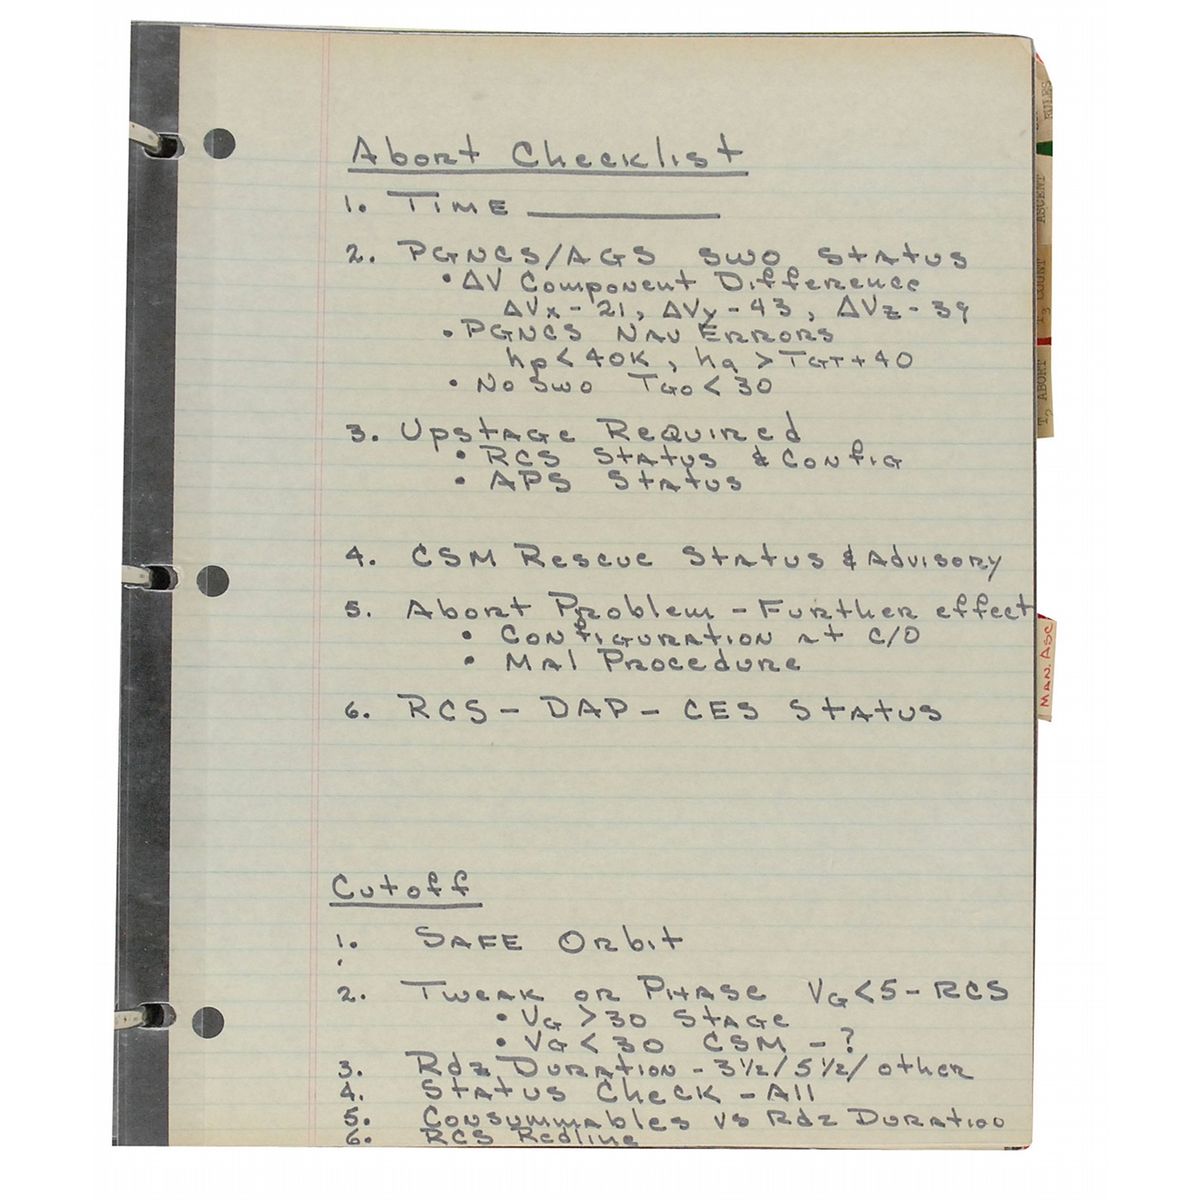 Abort Checklist
1. TIME ________
2. PGNCS/AGS SWO Status
• ΔV Component Difference
ΔVx - 21, ΔVy - 43, ΔVz - 39
• PGNCS NAV ERRORS
hp < 40K, ha > TGT + 40
• No SWO TGO < 30
3. Upstage Required
• RCS Status & Config
• APS Status
4. CSM Rescue Status & Advisory
5. Abort Problem - Further effect
• Configuration at C/O
• Mal Procedure
6. RCS - DAP - CES Status
Cutoff
1. SAFE Orbit
2. Tweak or Phase VG<5 - RCS
• VG >30 Stage
• VG < 30 CSM - ?
3. Rdz Duration - 3 1/2 / 5 1/2 / other
4. Status Check - All
5. Consummables vs Rdz Duration
6. RCS Redline
RULES
ASCENT
T3 COUNT
T2 ABORT
MAN. ASC